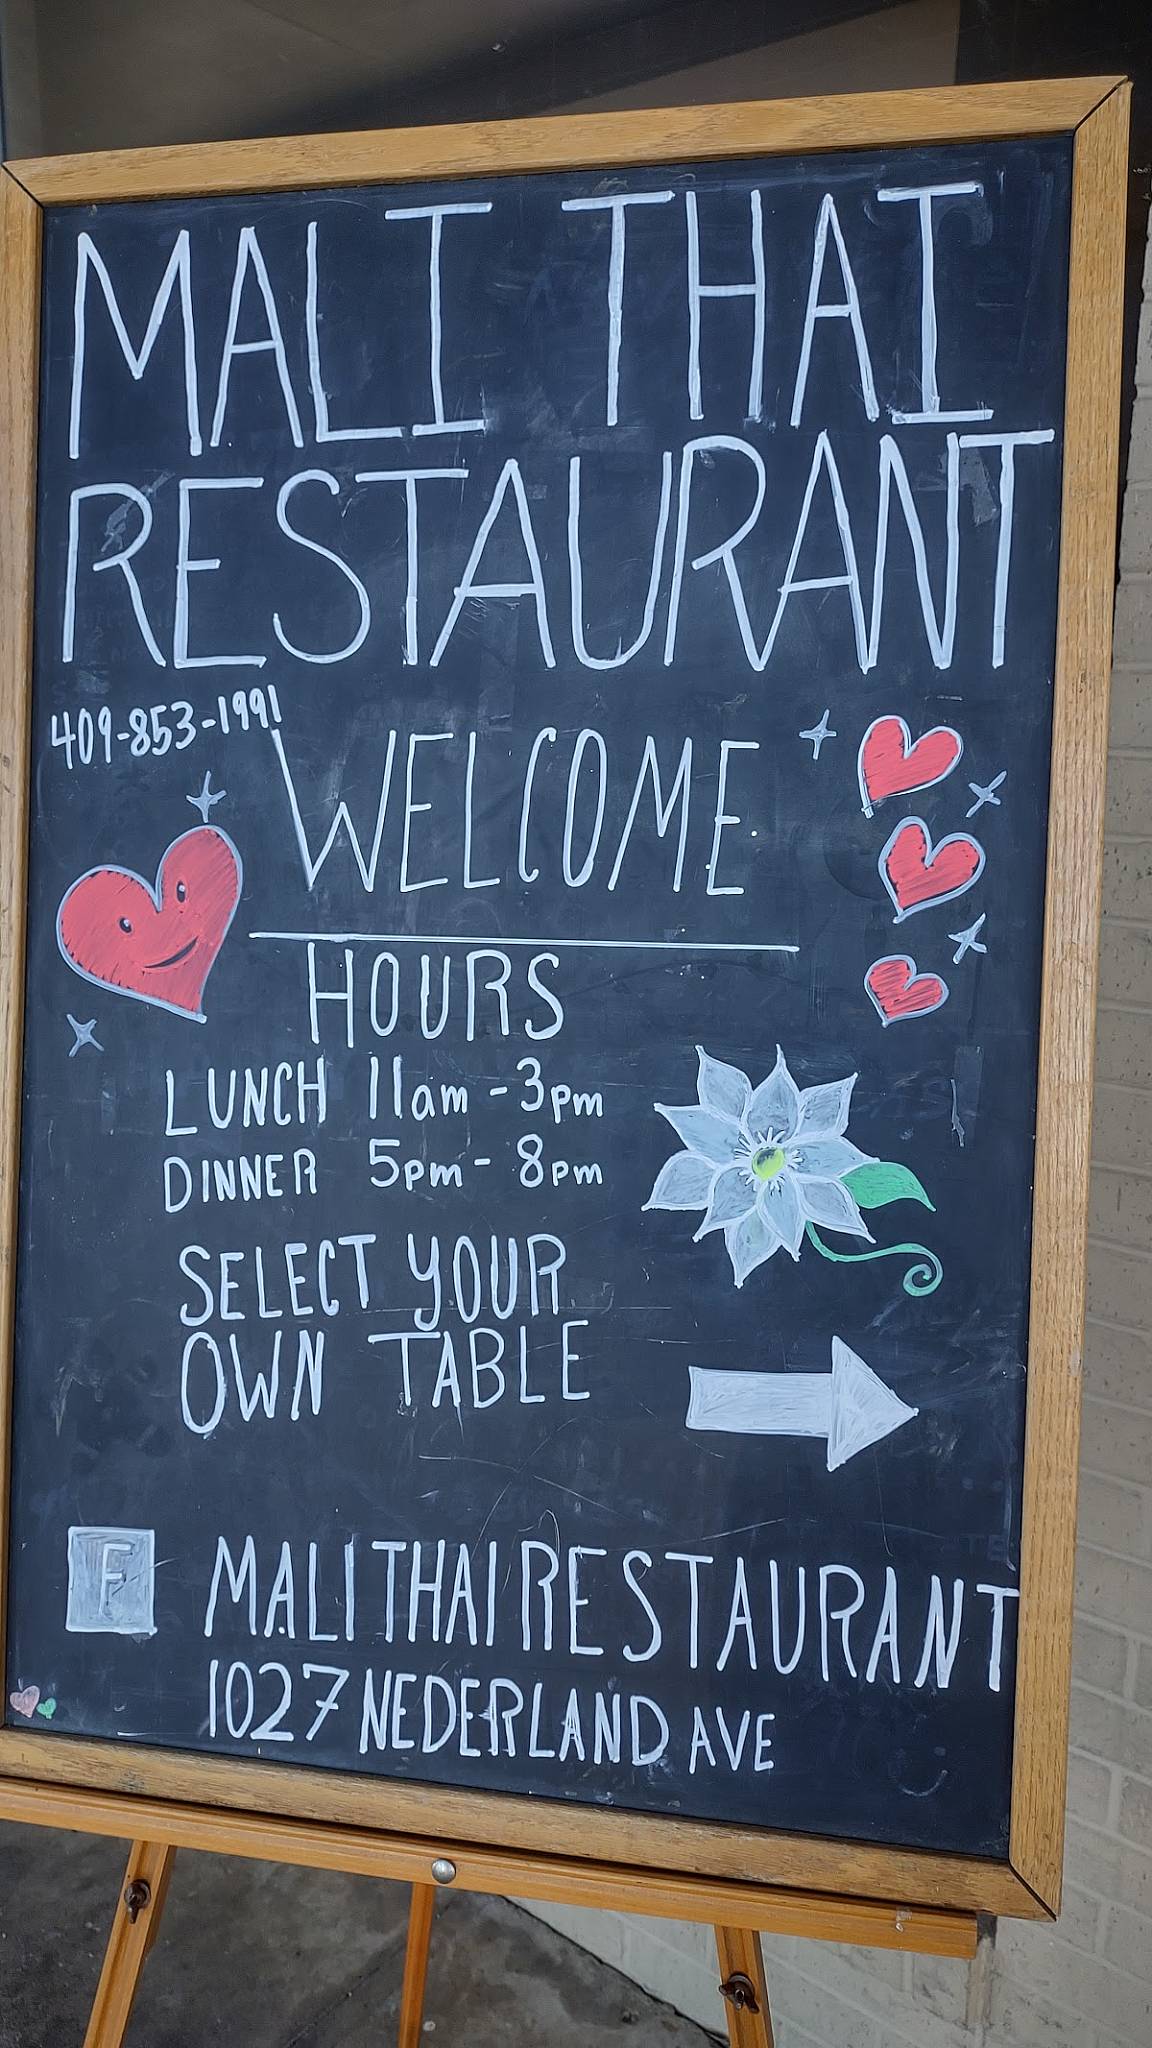 MALI THAI
RESTAURANT
409-853-1991
WELCOME
HOURS
LUNCH 11am - 3pm
DINNER 5pm - 8pm
SELECT YOUR
OWN TABLE
F MALITHAIRESTAURANT
1027 NEDERLAND AVE